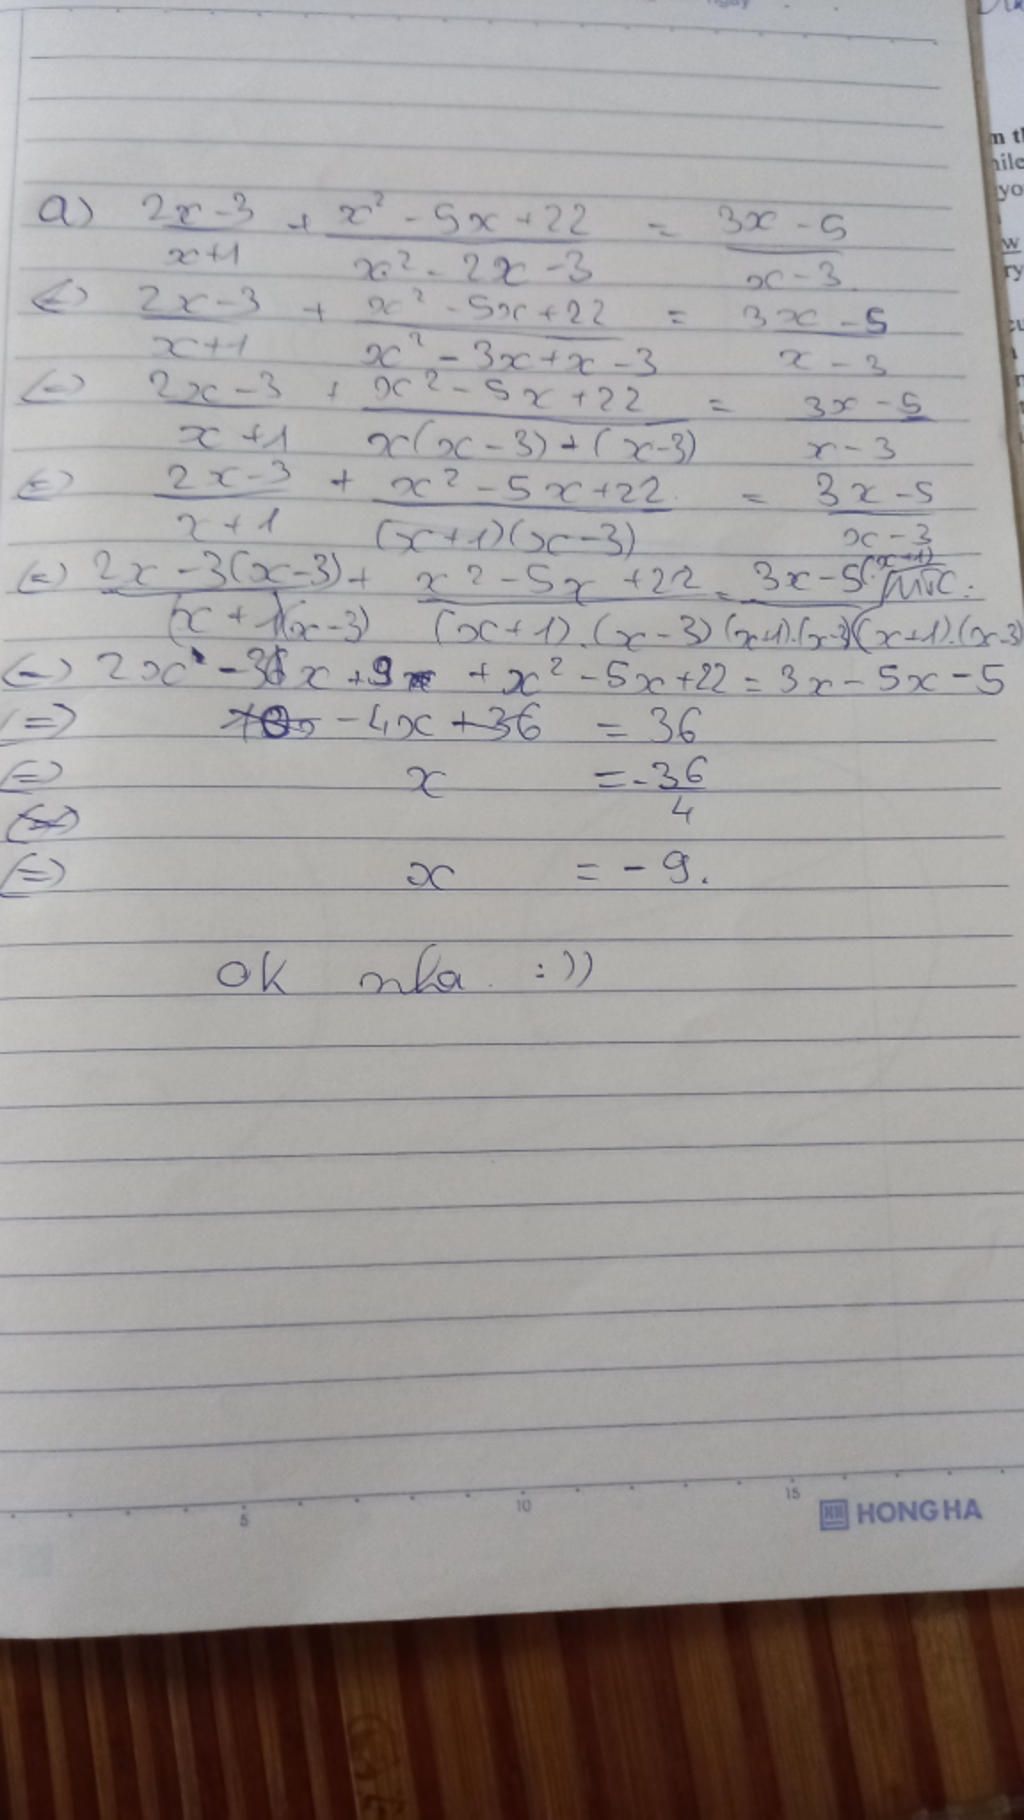 a) (2x-3)/(x+1) + (x² - 5x + 22)/(x² - 2x - 3) = (3x - 5)/(x - 3)
(=) (2x-3)/(x+1) + (x² - 5x + 22)/(x² - 3x + x - 3) = (3x - 5)/(x - 3)
(=) (2x-3)/(x+1) + (x² - 5x + 22)/(x(x-3)+(x-3)) = (3x - 5)/(x - 3)
(=) (2x-3)/(x+1) + (x² - 5x + 22)/((x+1)(x-3)) = (3x - 5)/(x - 3)
(=) (2x - 3(x-3))/((x+1)(x-3)) + (x² - 5x + 22)/((x+1).(x-3)) = 3x - 5(x+1)
(x+1).(x-3) (x+1).(x-3)
(=) 2x - 3x + 9 + x² - 5x + 22 = 3x - 5x - 5
(=) -4x + 36 = 36
(=) x = -36/4
(=) x = -9.
OK nha :))
5 10 15
HONG HA